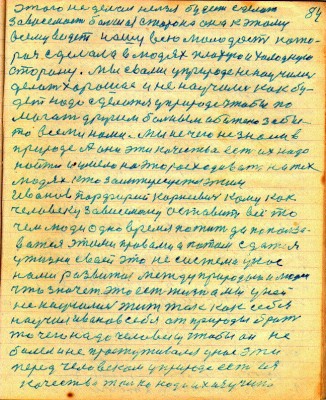 84
этого не делси нельзя будет сделат
зависемост большая сторона она к этому
всему ведет нашу всю молодост кото
рая сделала в людях плохую и холодную
сторону. Мы с вами у природе не научилис
делат хорошае и не научилис как бу
дет надо сделатся у природе чтобы по
могат другим больным обижено забы
то всеми нами. Мы нечего не знали в
природе А они эти качества ест их надо
найти и умело на это расходыват на тех
людях кто заинтересуется этим
Иванов Порфирий Корнеевич кому как
человеку зависемому оставит всё то
чем люди одно время пожит да попользо
ватся этими правами а потом сдатся
у жизни своей это не система у нас
нами развитая между природой и людми
что значет это ест жизн а мы у ней
не научилис жит так как себя
научил Иванов себя от природы брат
то чего надо человеку чтобы он не
болел и не простуживался у нас эти
перед человеком у природе ест ия
качества только надо их изучит